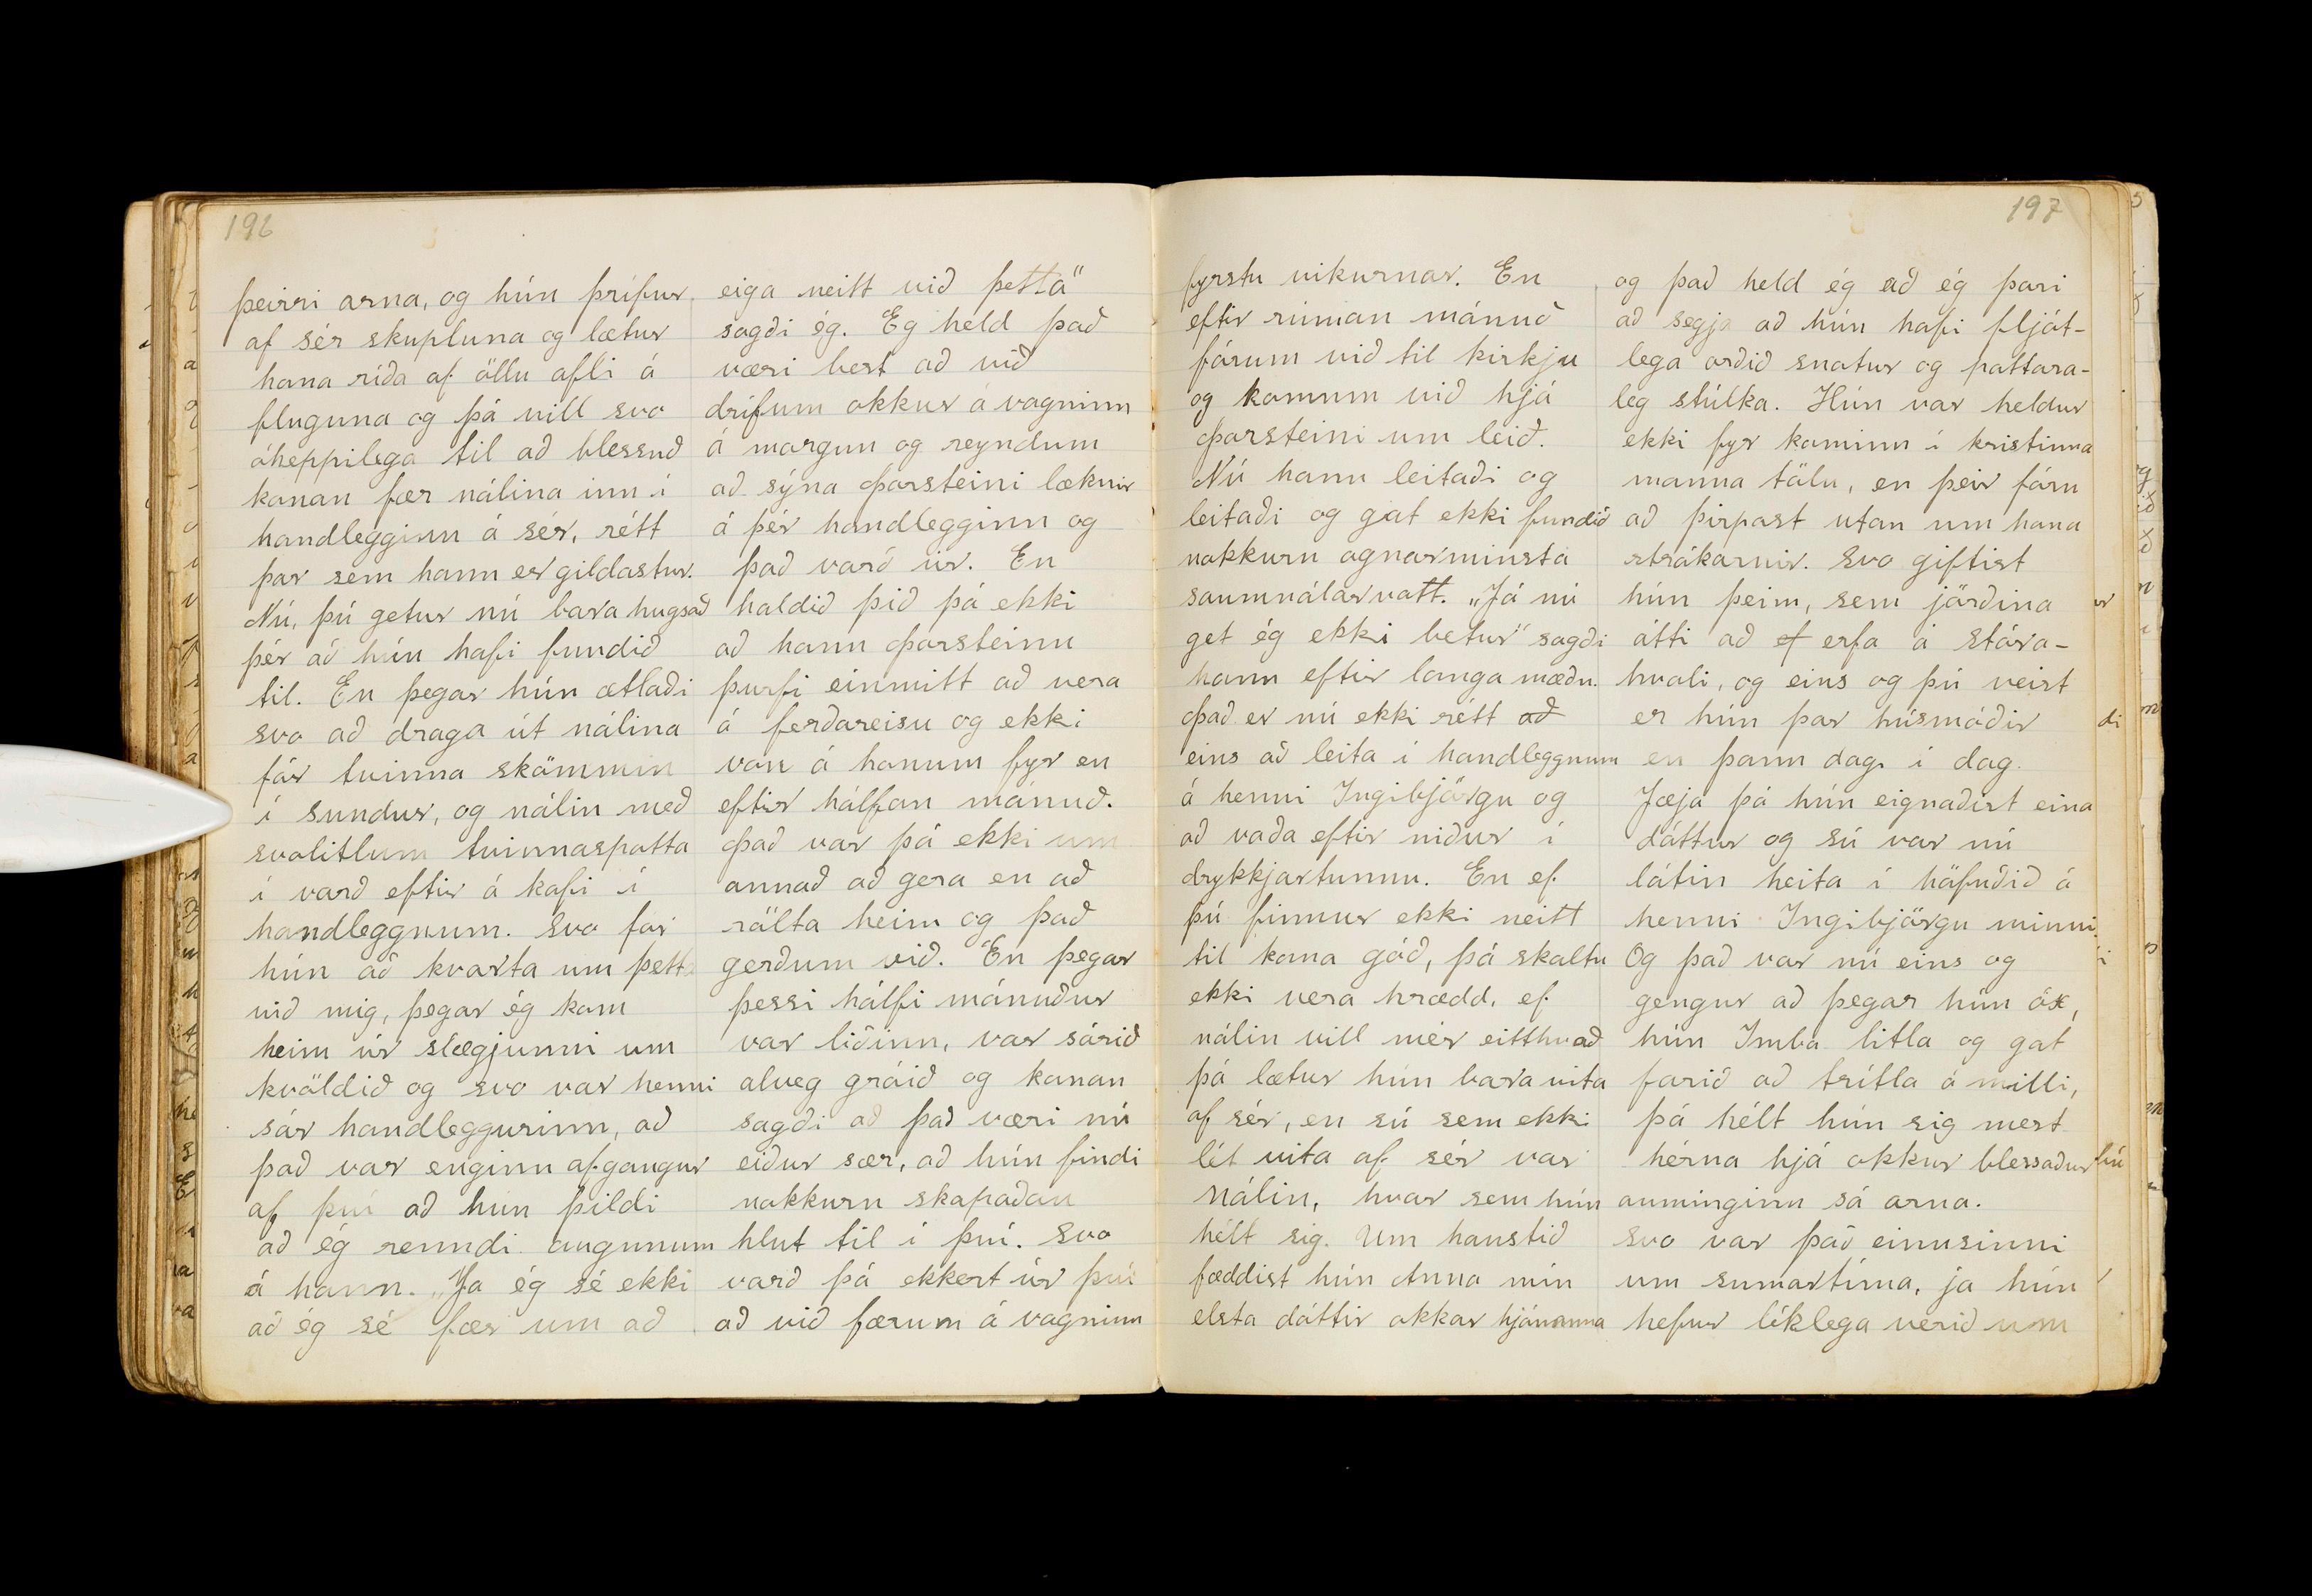 196
þeirri arna, og hún þrífur
af sér skupluna og lætur
hana ríða af öllu afli á
fluguna og þá vill svo
óheppilega til að blessuð
konan fær nálina inn í
handlegginn á sér, rétt
þar sem hann er gildastur.
Nú, þú getur nú bara hugsað
þér að hún hafi fundið
til. En þegar hún ætlaði
svo að draga út nálina
fór tvinna skömmin
í sundur, og nálin með
svolitlum tvinnaspotta
í varð eftir á kafi í
handleggnum. Svo fór
hún að kvarta um þetta
við mig, þegar ég kom
heim úr slægjunni um
kvöldið og svo var henni
sár handleggurinn, að
það var enginn afgangur
af því að hún þildi
að ég renndi augunum
á hann. „Ja ég sé ekki
að ég sé fær um að
eiga neitt við þetta“
sagði ég. Eg held það
væri best að við
drífum okkur á vagninn
á morgun og reyndum
að sýna Þorsteini læknir
á þér handlegginn og
það varð úr. En
haldið þið þá ekki
að hann Þorsteinn
þurfi einmitt að vera
á ferðareisu og ekki
von á honum fyr en
eftir hálfan mánuð.
Það var þá ekki um
annað að gera en að
rölta heim og það
gerðum við. En þegar
þessi hálfi mánuður
var liðinn, var sárið
alveg gróið og konan
sagði að það væri nú
eiður sær, að hún findi
nokkurn skapaðan
hlut til í því. Svo
varð þá ekkert úr því
að við færum á vagninn
197
fyrstu vikurnar. En
eftir rúman mánuð
fórum við til kirkju
og komum við hjá
Þorsteini um leið.
Nú hann leitaði og
leitaði og gat ekki fundið
nokkurn agnarminsta
saumnálarvott. „Já nú
get ég ekki betur“ sagði
hann eftir langa mæðu.
Það er nú ekki rétt að
eins að leita í handleggnum
á henni Ingibjörgu og
að vaða eftir niður í
drykkjartunnu. En ef
þú finnur ekki neitt
til kona góð, þá skaltu
ekki vera hrædd, ef
nálin vill mér eitthvað
þá lætur hún bara vita
af sér, en sú sem ekki
lét vita af sér var
nálin, hvar sem hún
hélt sig. Um haustið
fæddist hún Anna mín
elsta dóttir okkar hjónanna
og það held ég að ég þori
að segja að hún hafi fljót-
lega orðið snotur og pottara-
leg stúlka. Hún var heldur
ekki fyr kominn í kristinna
manna tölu, en þeir fóru
að þirpast utan um hana
strákarnir. Svo giftist
hún þeim, sem jörðina
átti að ef erfa á Stóra-
hvoli, og eins og þú veist
er hún þar húsmóðir
en þann dag í dag.
Jæja þá hún eignaðist eina
dóttur og sú var nú
látin heita í höfuðið á
henni Ingibjörgu minni.
Og það var nú eins og
gengur að þegar hún óx,
hún Imba litla og gat
farið að trítla á milli,
þá hélt hún sig mest
hérna hjá okkur blessaður
auminginn sá arna.
Svo var það einusinni
um sumartíma, ja hún
hefur líklega verið um